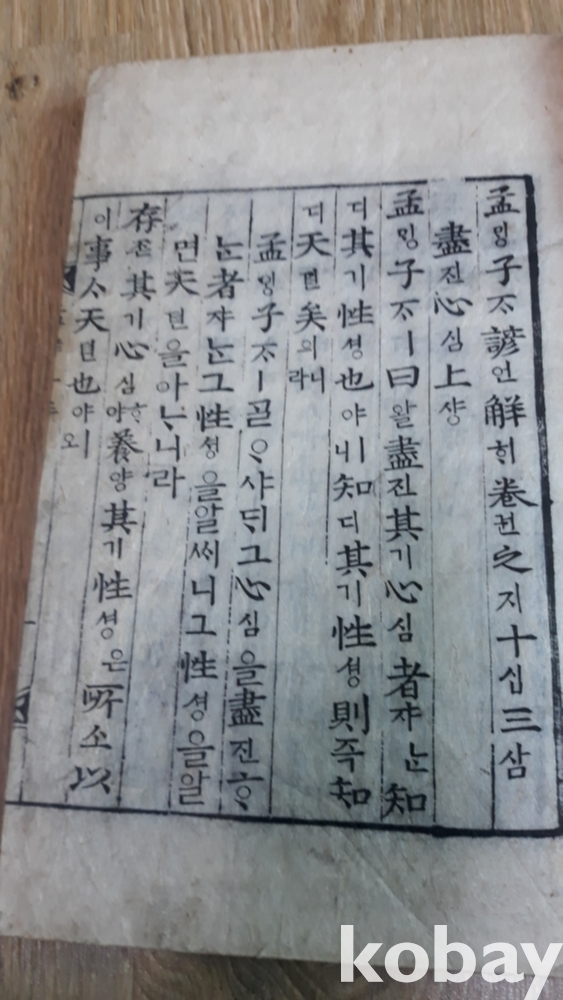 孟ᄆᆡᆼ子ᄌᆞ諺언解ᄒᆡ卷권之지十십三삼
盡진心심上샹
孟ᄆᆡᆼ子ᄌᆞㅣ曰왈盡진其기心심者쟈ᄂᆞᆫ知
디其기性셩也야ㅣ니知디其기性셩則즉知
디天텬矣의니라
孟ᄆᆡᆼ子ᄌᆞㅣᄀᆞᆯᄋᆞ샤ᄃᆡ그心심을盡진ᄒᆞ
ᄂᆞᆫ者쟈ᄂᆞᆫ그性셩을알씨니그性셩을알
면天텬을아ᄂᆞ니라
存존其기心심ᄒᆞ야養양其기性셩은所소以
이事ᄉᆞ天텬也야ㅣ오
kobay